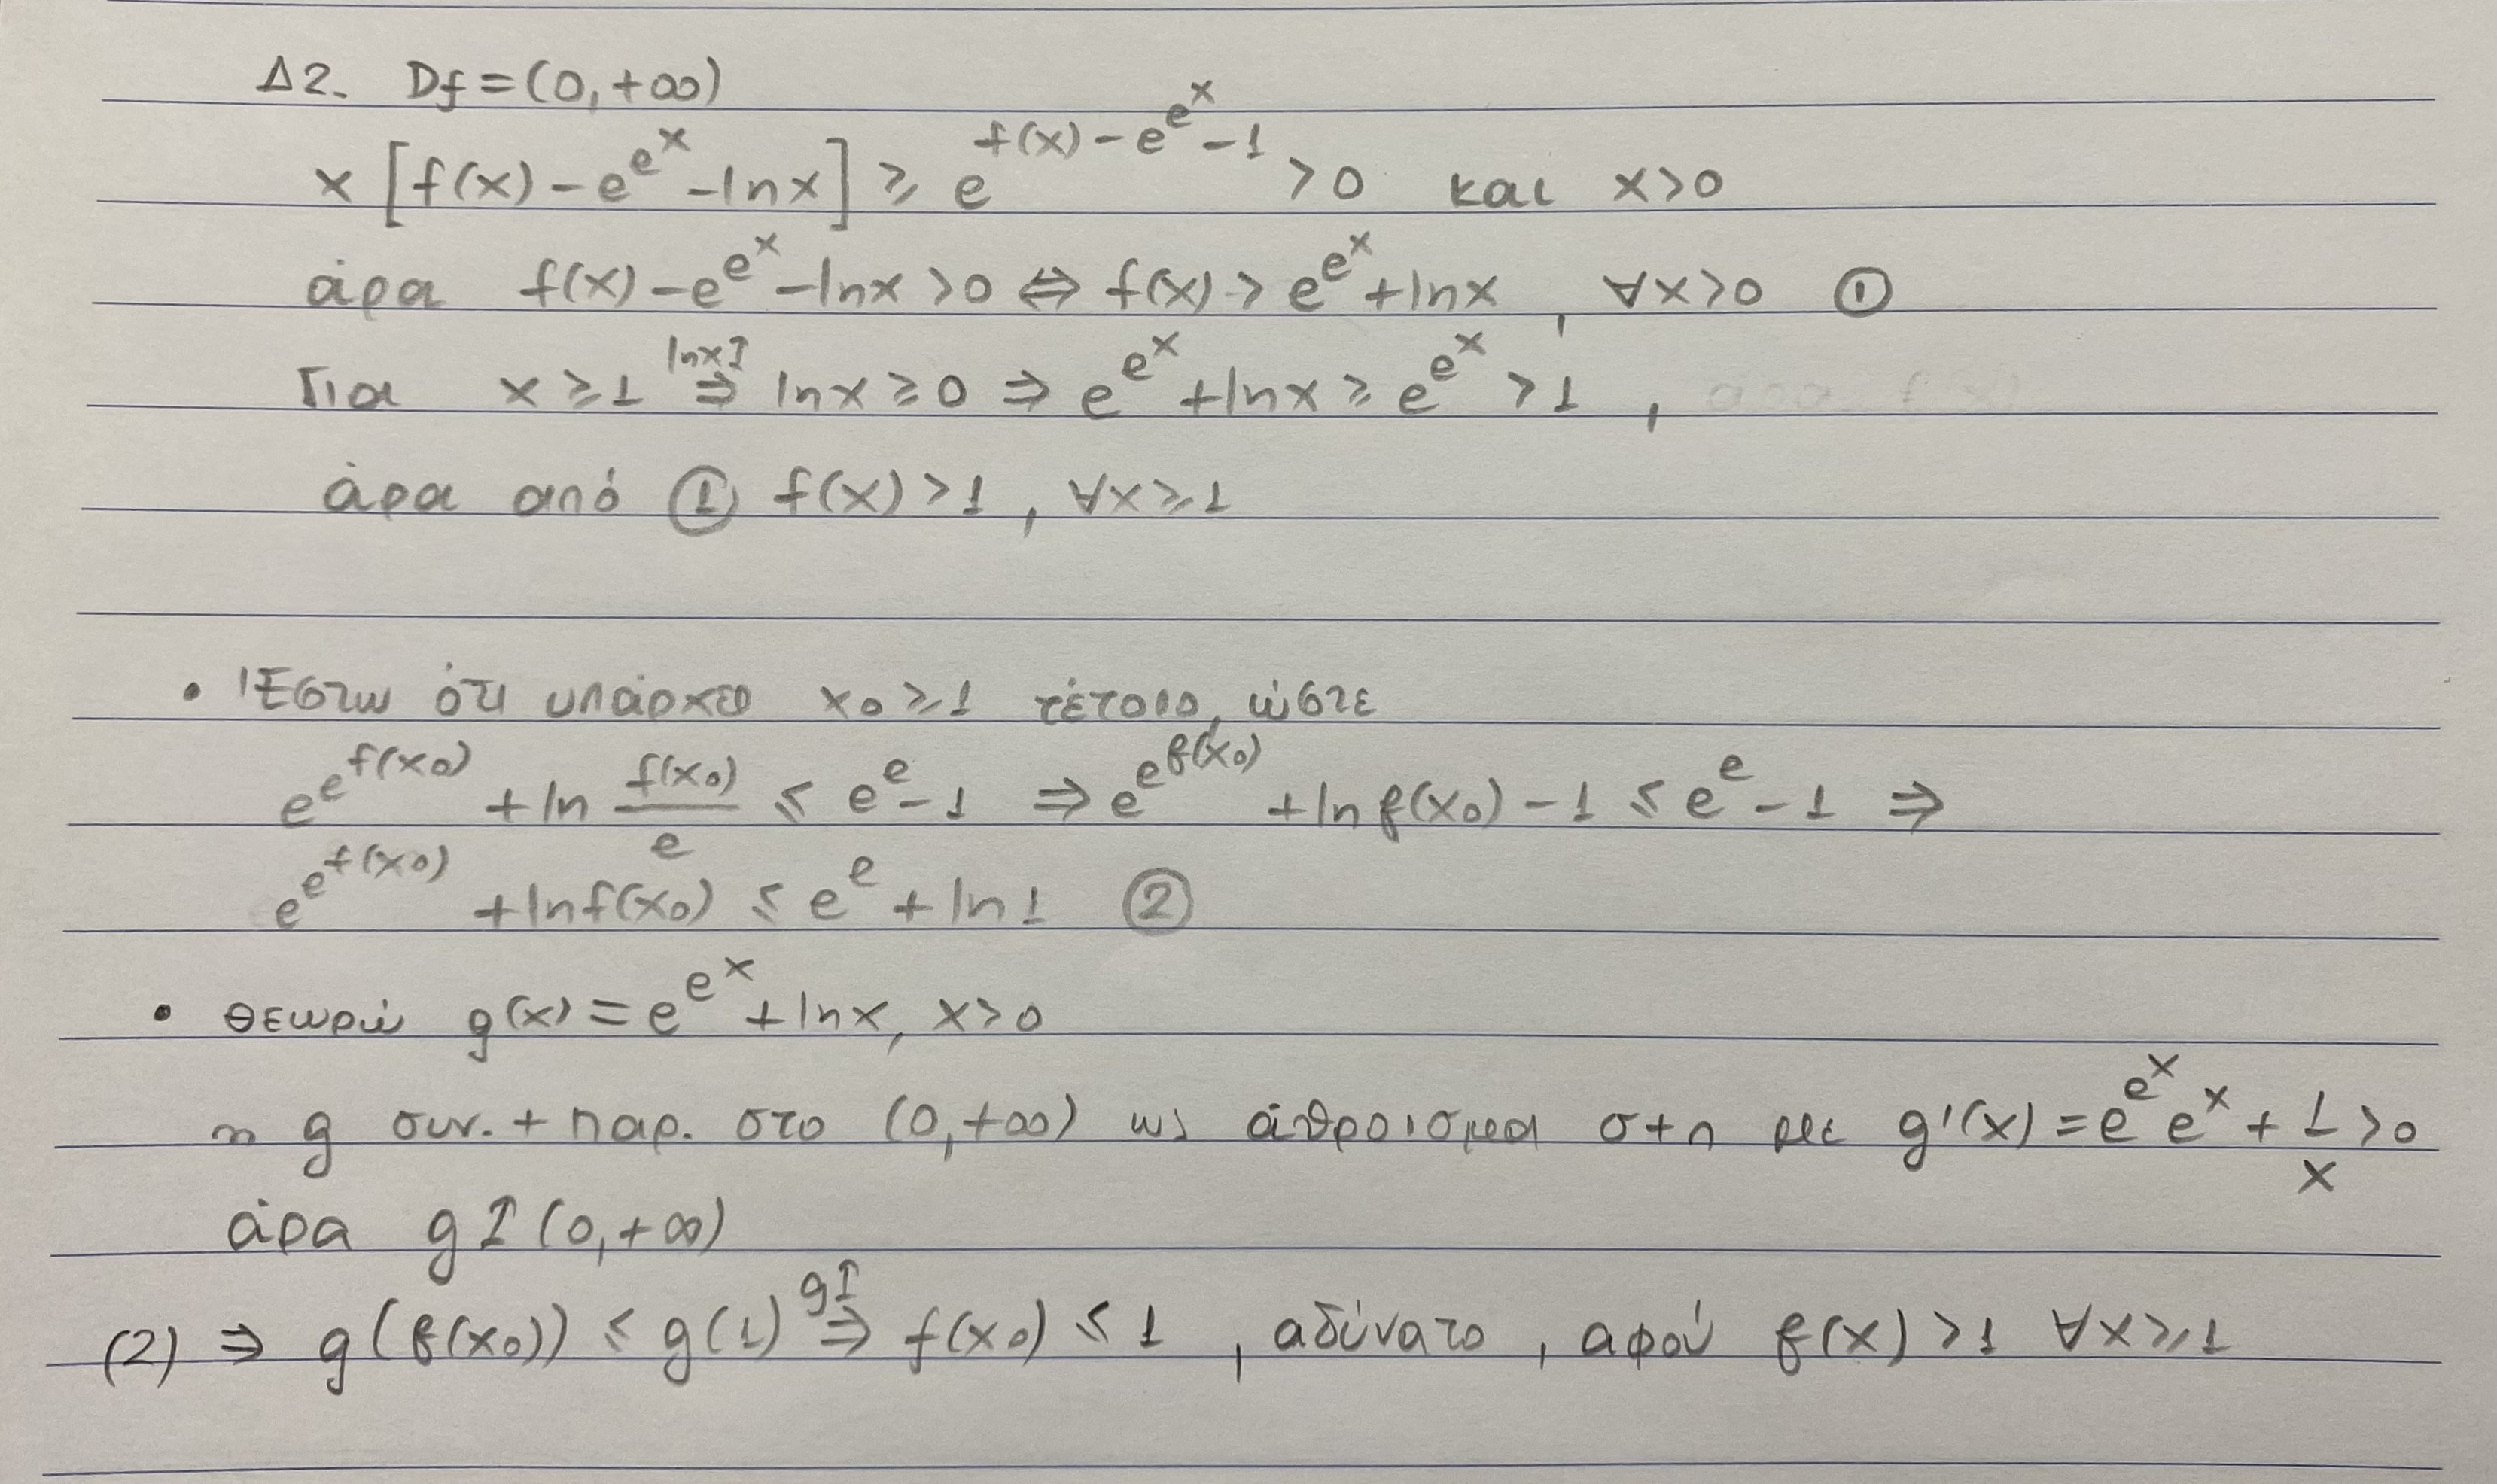 Δ2. Df = (0, +∞)
x [f(x) - e^{e^x} - lnx] ≥ e^{f(x) - e^{e^x} - 1} > 0 και x>0
άρα f(x) - e^{e^x} - lnx > 0 ⇔ f(x) > e^{e^x} + lnx , ∀x>0 ①
Για x ≥ 1 ⇒^{lnx↑} lnx ≥ 0 ⇒ e^{e^x} + lnx ≥ e^{e^x} > 1 ,
άρα από ① f(x) > 1 , ∀x ≥ 1
• Έστω ότι υπάρχει x₀ ≥ 1 τέτοιο, ώστε
e^{e^{f(x₀)}} + ln \frac{f(x₀)}{e} ≤ e^e - 1 ⇒ e^{e^{f(x₀)}} + ln f(x₀) - 1 ≤ e^e - 1 ⇒
e^{e^{f(x₀)}} + lnf(x₀) ≤ e^e + ln1 ②
• Θεωρώ g(x) = e^{e^x} + lnx, x>0
η g συν. + παρ. στο (0, +∞) ως άθροισμα σ+π με g'(x) = e^{e^x} e^x + \frac{1}{x} > 0
άρα g↑(0, +∞)
(2) ⇒ g(f(x₀)) ≤ g(1) ⇒^{g↑} f(x₀) ≤ 1 , αδύνατο , αφού f(x) > 1 ∀x ≥ 1